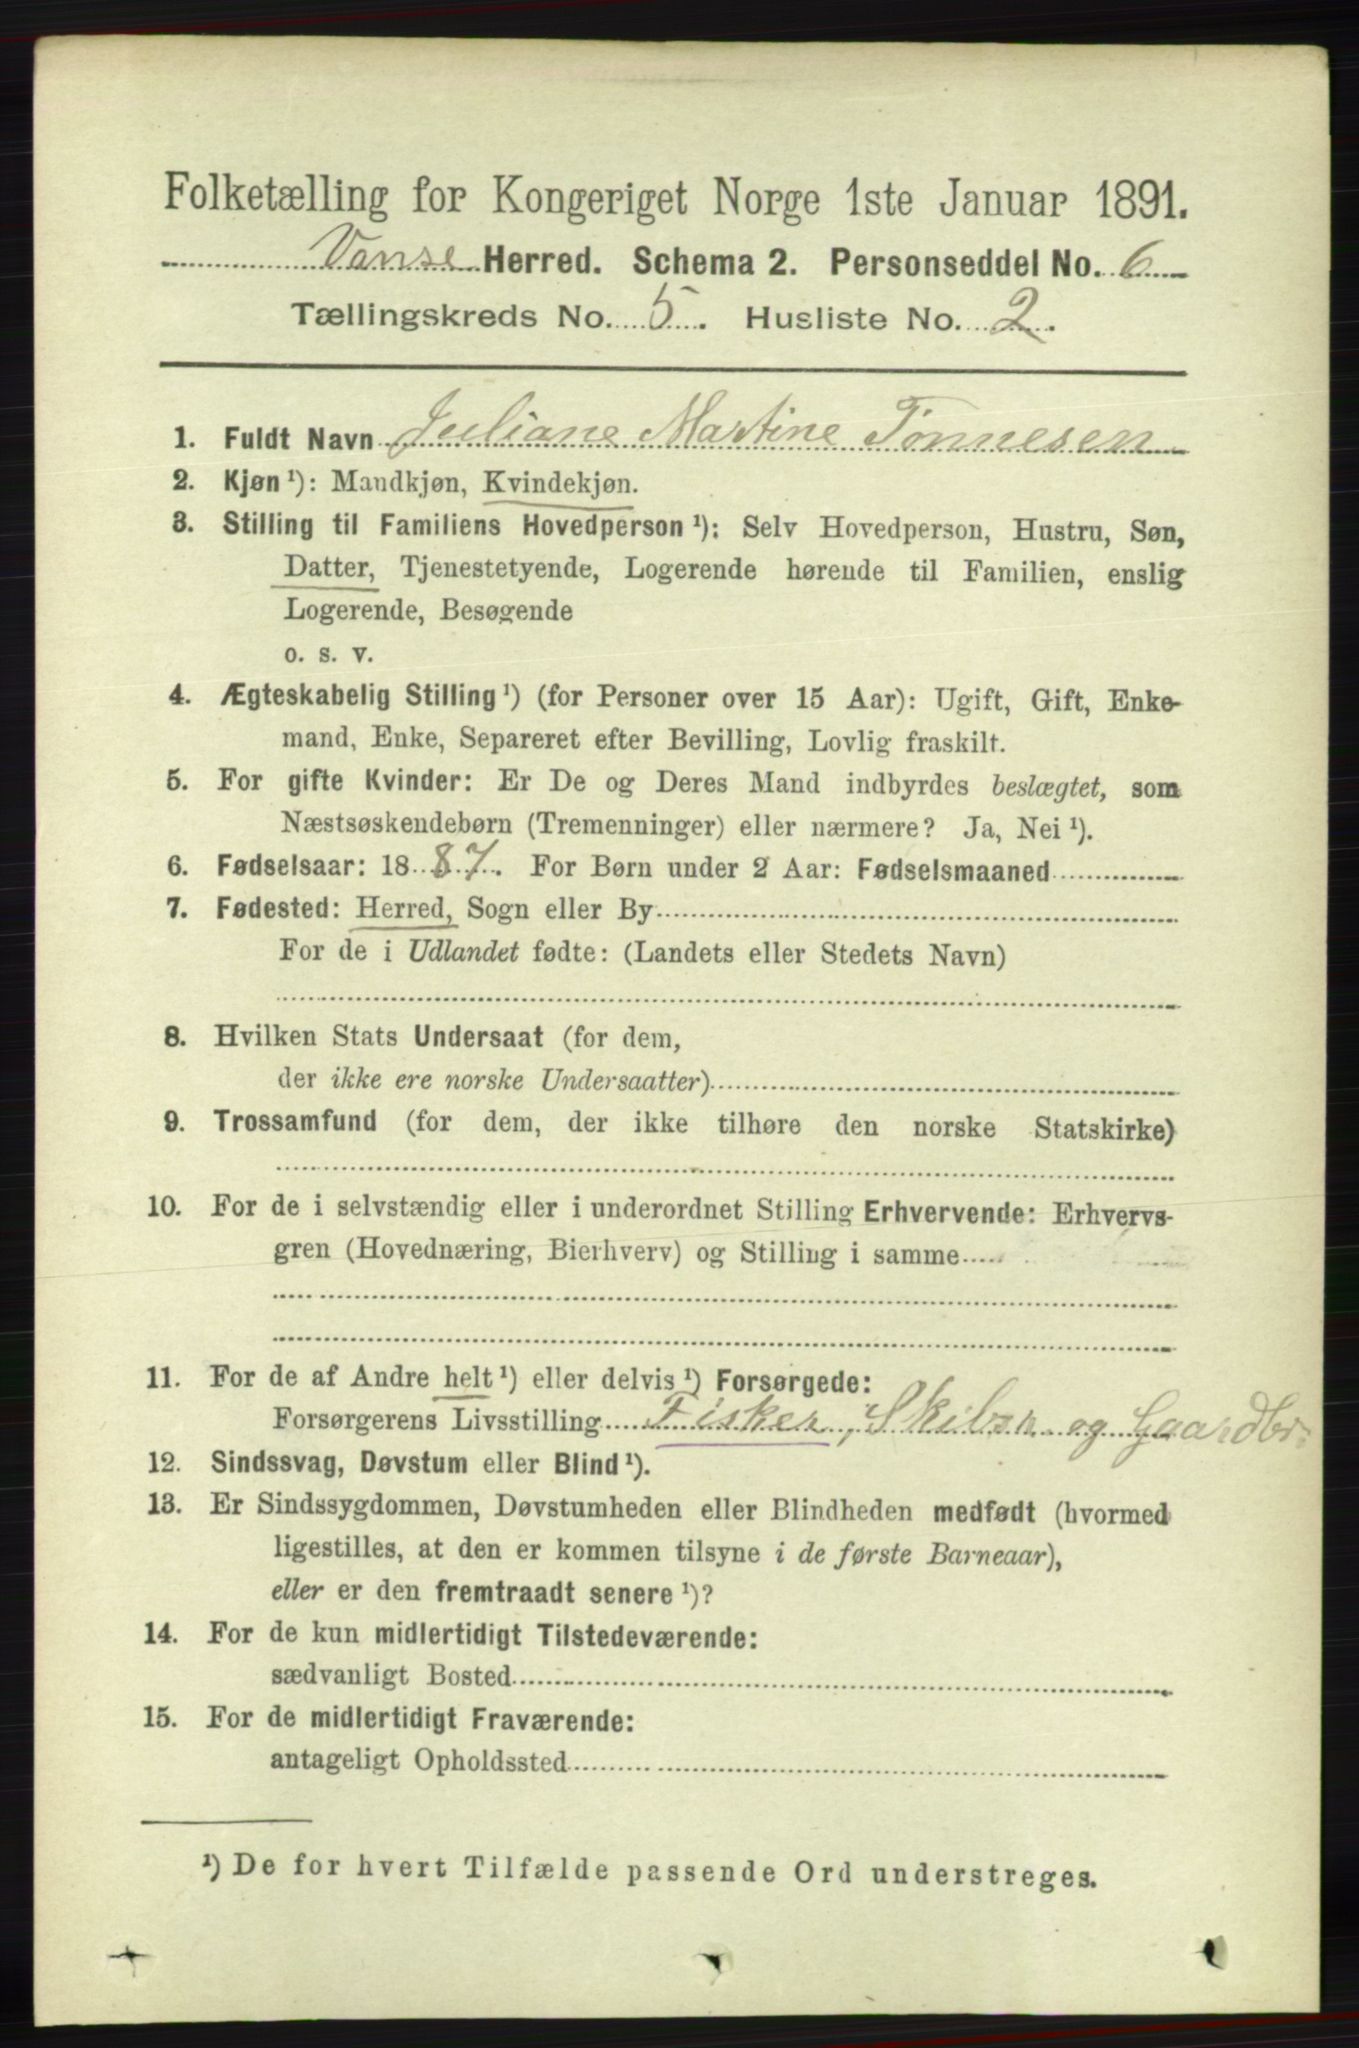 Folketælling for Kongeriget Norge 1ste Januar 1891.
Vanse Herred. Schema 2. Personseddel No. 6
Tællingskreds No. 5. Husliste No. 2.
1. Fuldt Navn Juliane Martine Tönnesen
2. Kjøn ¹): Mandkjøn, Kvindekjøn.
3. Stilling til Familiens Hovedperson ¹): Selv Hovedperson, Hustru, Søn,
Datter, Tjenestetyende, Logerende hørende til Familien, enslig
Logerende, Besøgende
o. s. v.
4. Ægteskabelig Stilling ¹) (for Personer over 15 Aar): Ugift, Gift, Enke-
mand, Enke, Separeret efter Bevilling, Lovlig fraskilt.
5. For gifte Kvinder: Er De og Deres Mand indbyrdes beslægtet, som
Næstsøskendebørn (Tremenninger) eller nærmere? Ja, Nei ¹).
6. Fødselsaar: 1887. For Børn under 2 Aar: Fødselsmaaned
7. Fødested: Herred, Sogn eller By
For de i Udlandet fødte: (Landets eller Stedets Navn)
8. Hvilken Stats Undersaat (for dem,
der ikke ere norske Undersaatter)
9. Trossamfund (for dem, der ikke tilhøre den norske Statskirke)
10. For de i selvstændig eller i underordnet Stilling Erhvervende: Erhvervs-
gren (Hovednæring, Bierhverv) og Stilling i samme
11. For de af Andre helt ¹) eller delvis ¹) Forsørgede:
Forsørgerens Livsstilling Fisker, Skibsr. og Gaardbr.
12. Sindssvag, Døvstum eller Blind ¹).
13. Er Sindssygdommen, Døvstumheden eller Blindheden medfødt (hvormed
ligestilles, at den er kommen tilsyne i de første Barneaar),
eller er den fremtraadt senere ¹)?
14. For de kun midlertidigt Tilstedeværende:
sædvanligt Bosted
15. For de midlertidigt Fraværende:
antageligt Opholdssted
¹) De for hvert Tilfælde passende Ord understreges.